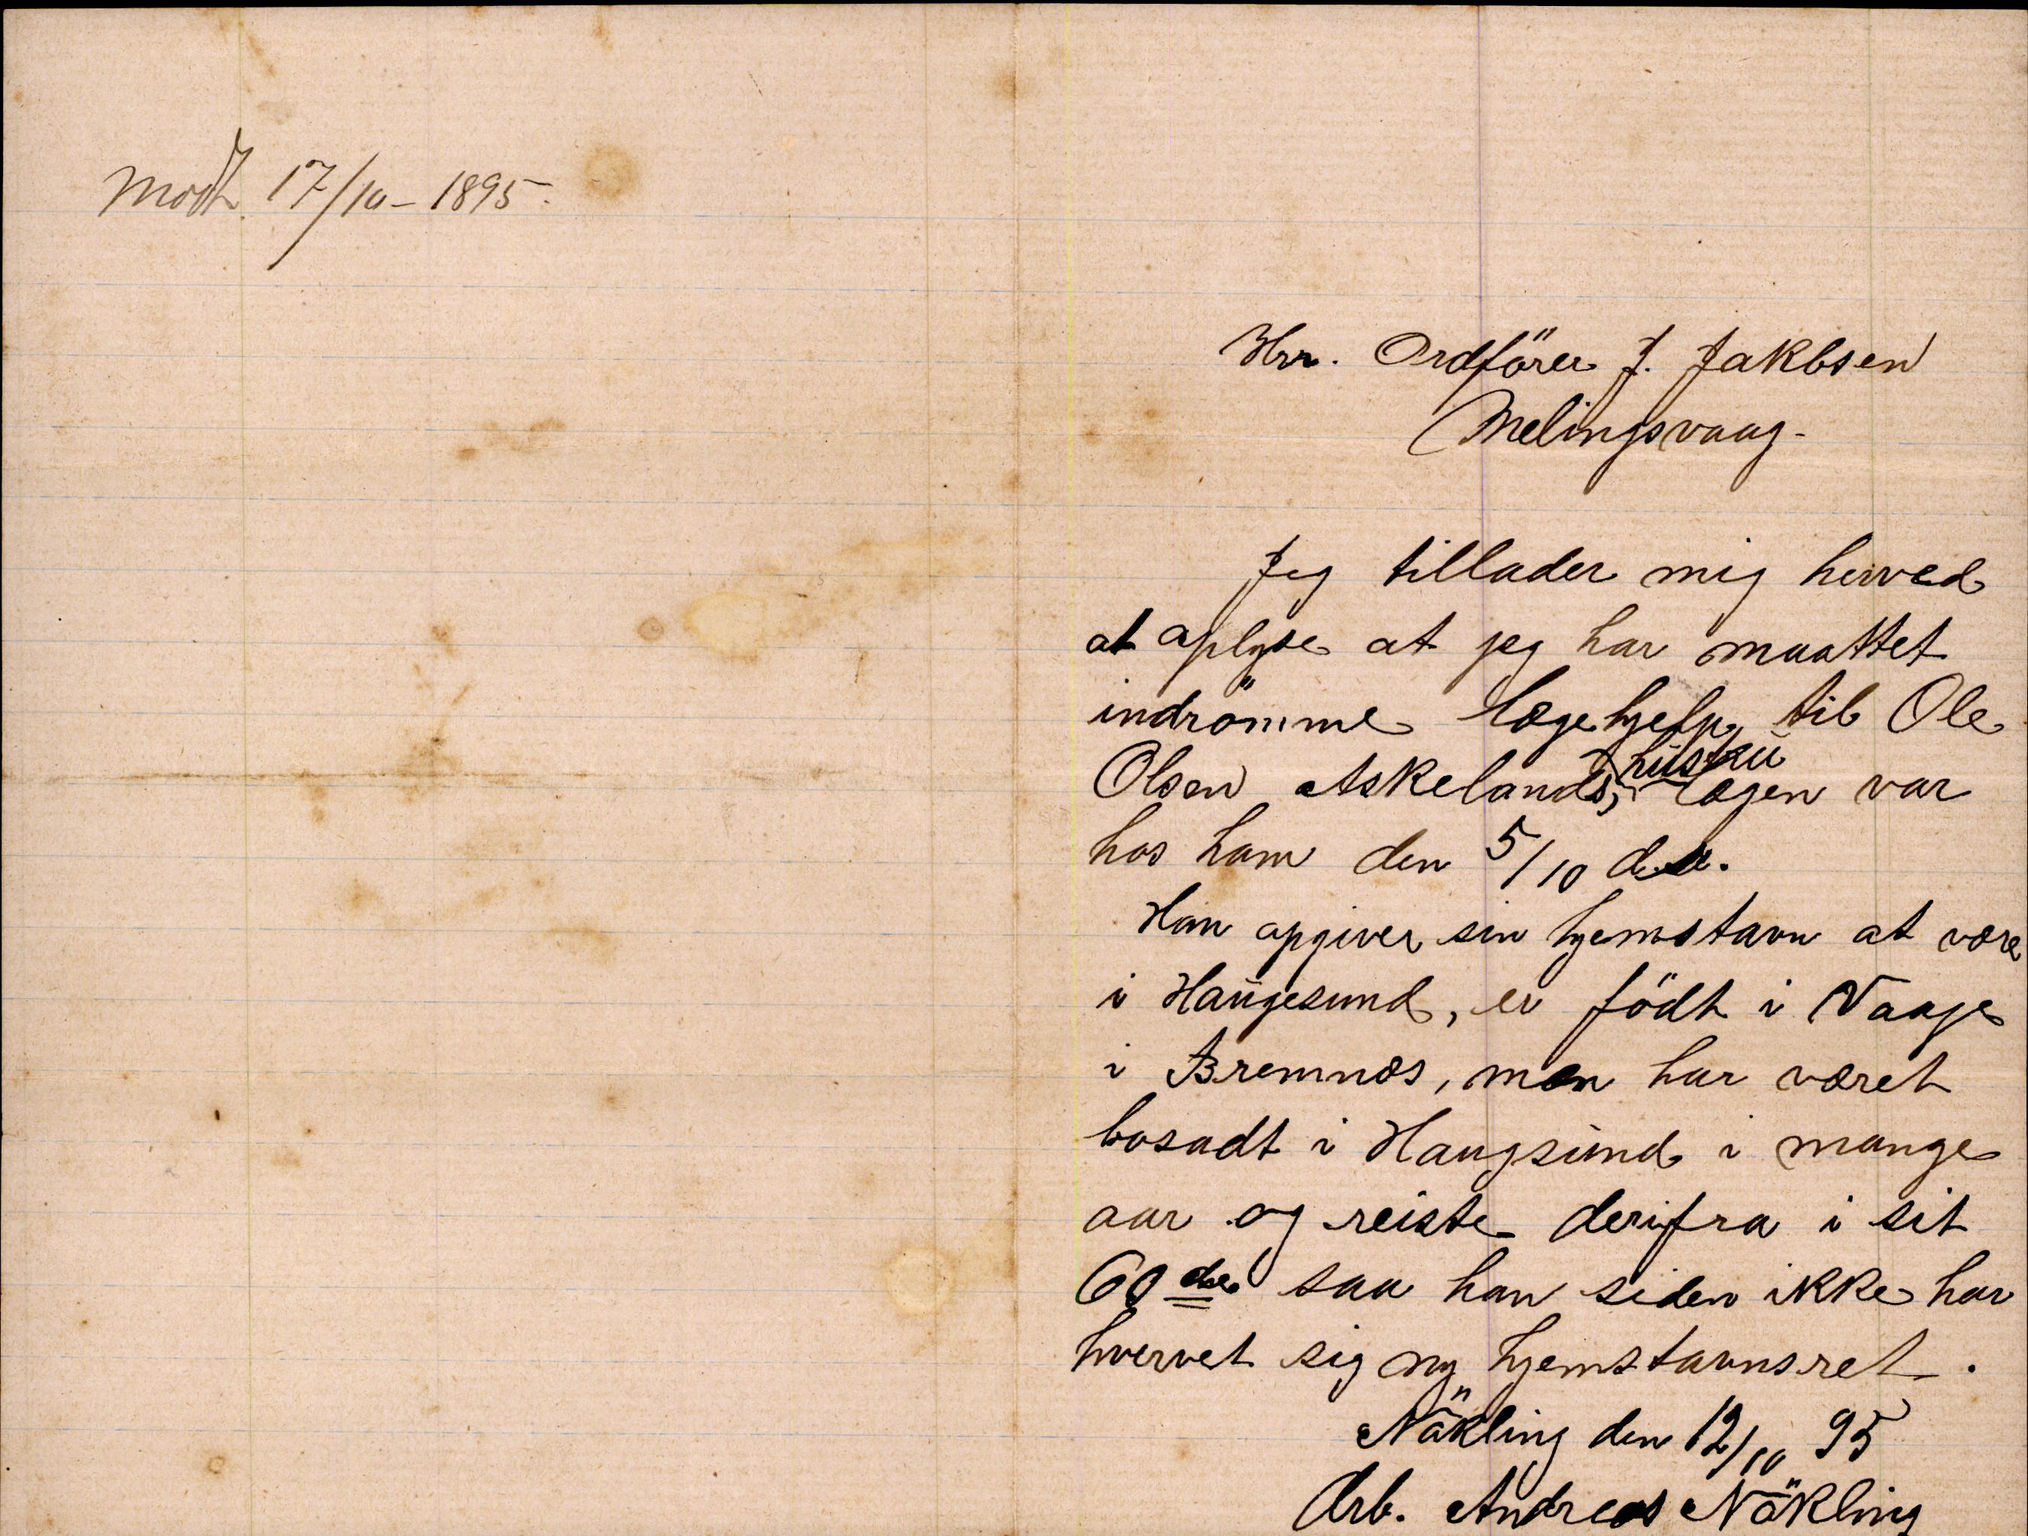 Modt. 17/10 - 1895.
Hrr. Ordförer J. Jakbsen
Melingsvaag-
Jeg tillader mig herved
at oplyse at jeg har maattet
indrömme lægehjelp til Ole
Olsen Askelands, hustru lægen var
hos ham den 5/10 d.a.
Han opgiver sin hjemstavn at være
i Haugesund, er födt i Vaage
i Bremnæs, men har været
bosadt i Haugsund i mange
aar og reiste derifra i sit
60de saa han siden ikke har
hvervet sig ny hjemstavnsret.
Näkling den 12/10 95
Arb. Andreas Näkling